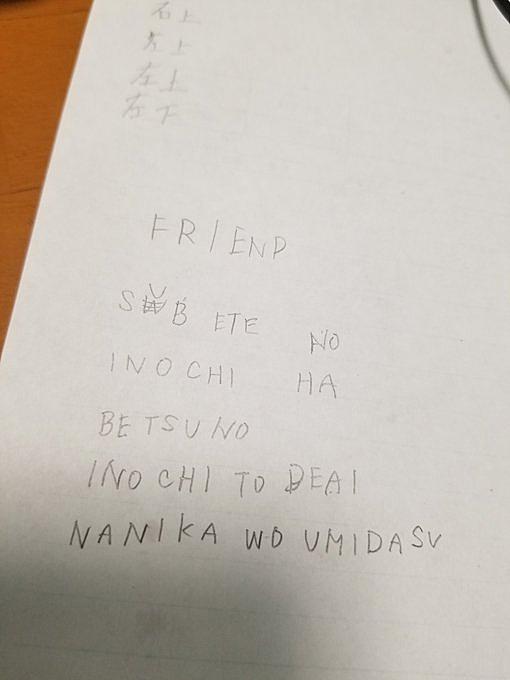 右上
左上
左上
左下
FRIEND
SUBETE NO
INOCHI HA
BETSUNO
INOCHI TO DEAI
NANIKA WO UMIDASU